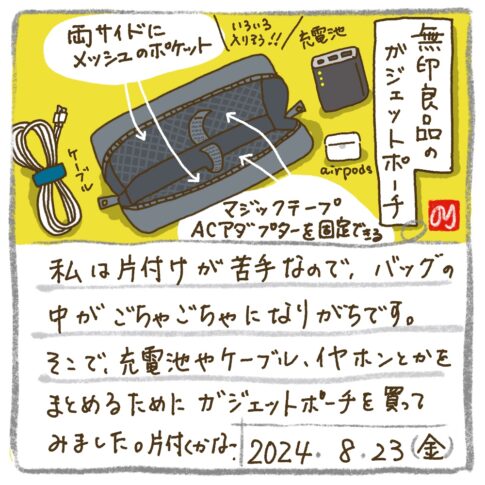 両サイドに
メッシュのポケット
いろいろ
入りそう!!
充電池
無印良品の
ガジェットポーチ
ケーブル
airpods
マジックテープ
ACアダプターを固定できる
私は片付けが苦手なので、バッグの
中がごちゃごちゃになりがちです。
そこで、充電池やケーブル、イヤホンとかを
まとめるためにガジェットポーチを買って
みました。片付くかな〜
2024. 8.23(金)